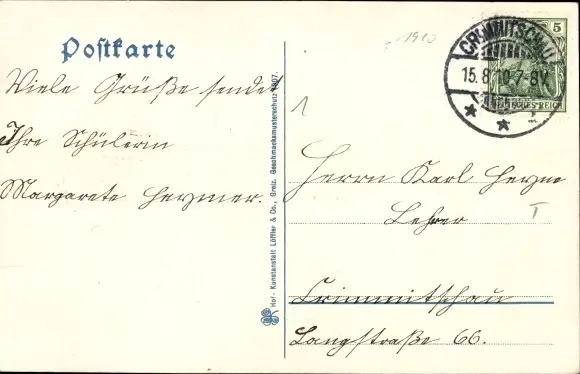 Postkarte
Viele Grüße sendet
Ihre Schülerin
Margarete Heymer.
Hof-Kunstanstalt Löffler & Co., Greiz. Geschmacksmusterschutz 1907.
1910
1
CRIMMITSCHAU
15.8.10.7-8V.
5
DEUTSCHES REICH
Herrn Karl Heyne
Lehrer
T
Crimmitschau
Langstraße 66.